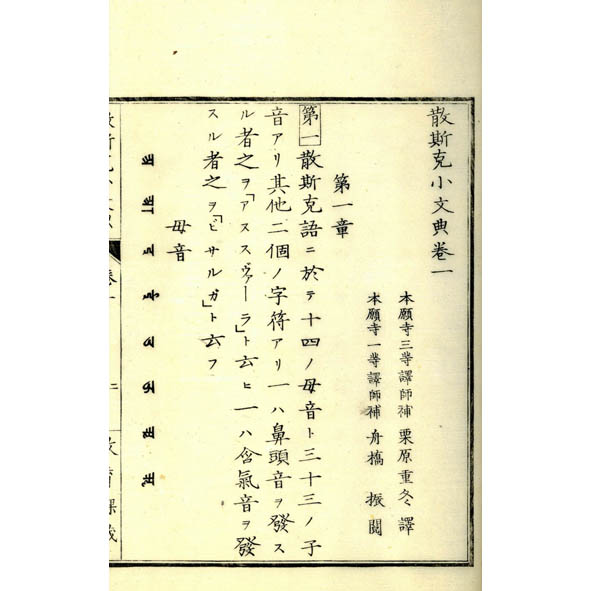 散斯克小文典卷一
本願寺三等譯師補 栗原重冬 譯
本願寺一等譯師補 舟橋 振 閲
第一章
第一 散斯克語ニ於テ十四ノ母音ト三十三ノ子
音アリ其他二個ノ字符アリ一ハ鼻頭音ヲ發ス
ル者之ヲ「アススヴァーラ」ト云ヒ一ハ含氣音ヲ發
スル者之ヲ「ビサルガ」ト云フ
母音
散斯克小文典 卷一 二 教育課藏